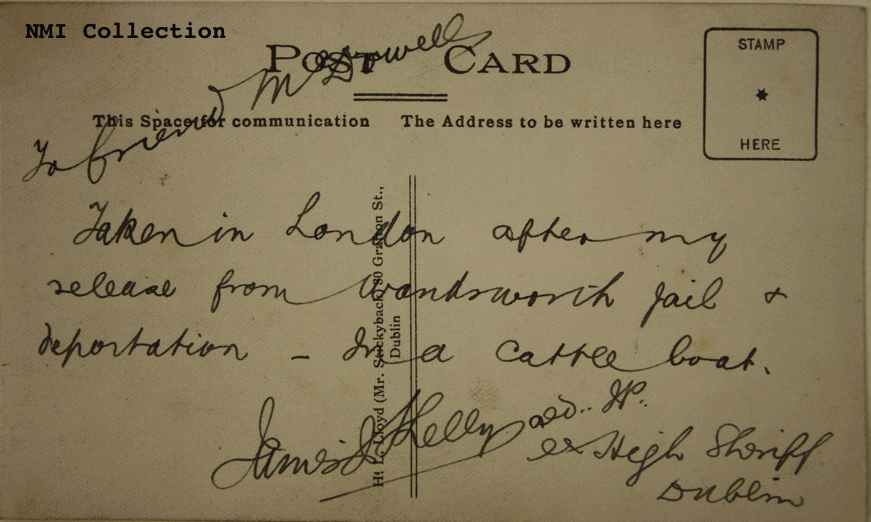 NMI Collection
POST CARD
STAMP
HERE
This Space for communication The Address to be written here
To friend McDowell
Taken in London after my
release from Wandsworth Jail &
deportation – In a cattle boat.
James J Kelly ald.. JP.
ex High Sheriff
Dublin
H. L. Lloyd (Mr. Stickyback) 80 Grafton St.,
Dublin